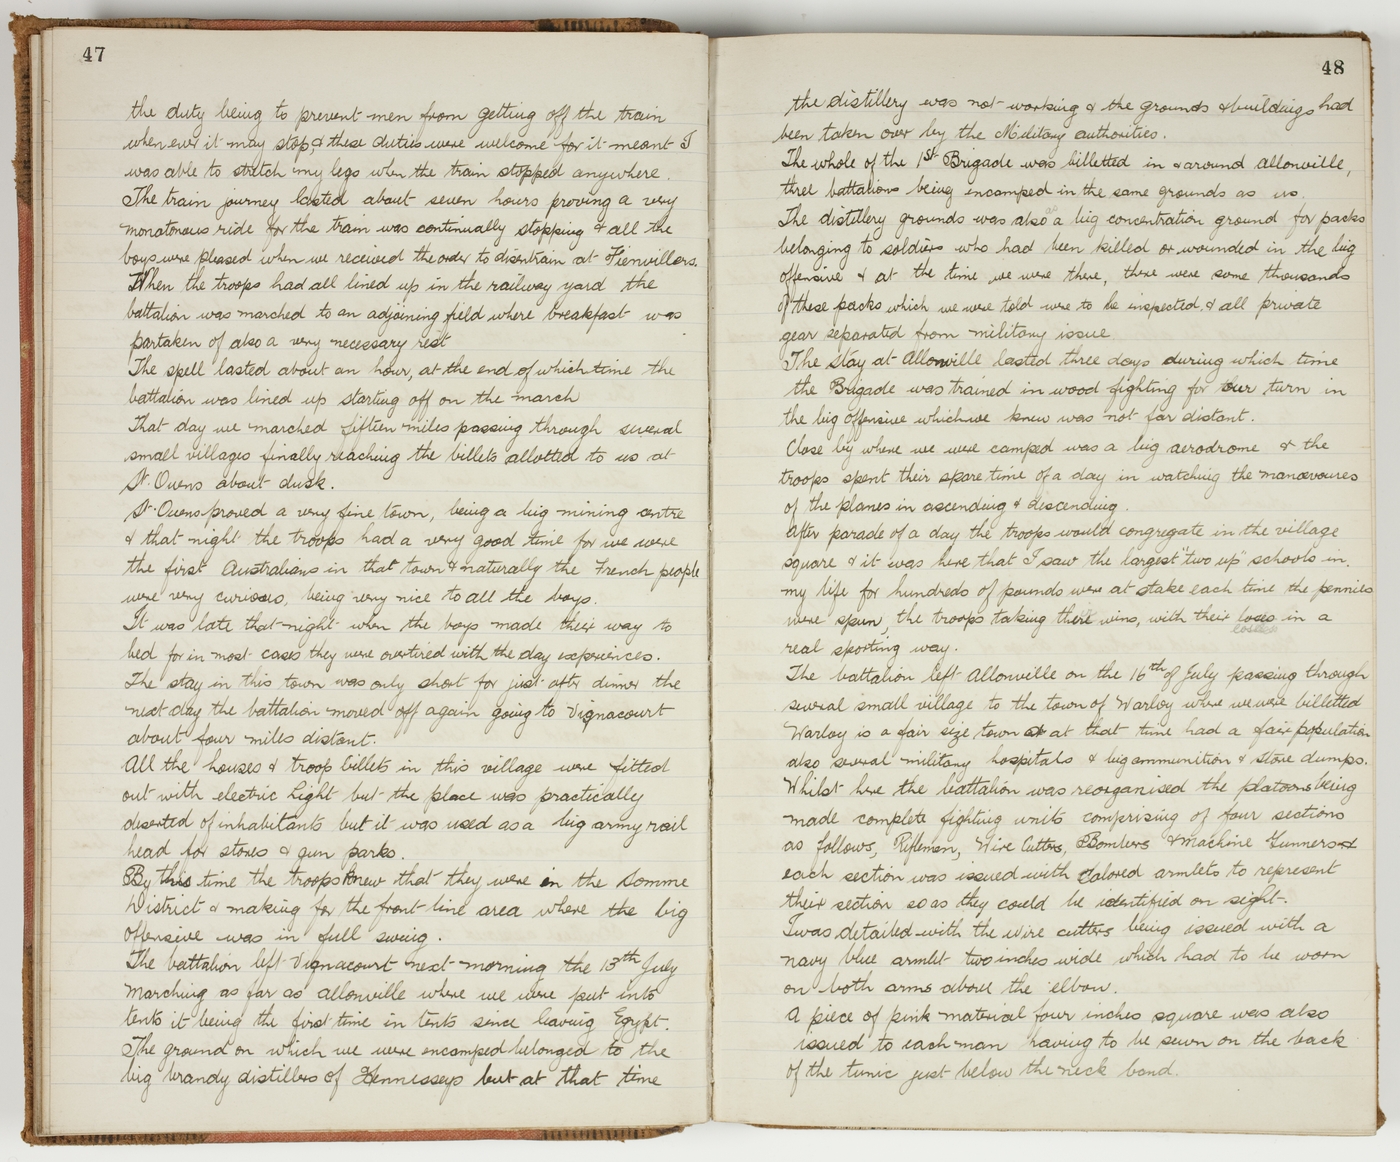 47
the duty being to prevent men from getting off the train
when ever it may stop, & these duties were welcome for it meant I
was able to stretch my legs when the train stopped anywhere.
The train journey lasted about seven hours proving a very
monotonous ride for the train was continually stopping & all the
boys were pleased when we received the order to disentrain at Fienvillers.
When the troops had all lined up in the railway yard the
battalion was marched to an adjoining field where breakfast was
partaken of also a very necessary rest
The spell lasted about an hour, at the end of which time the
battalion was lined up starting off on the march
That day we marched fifteen miles passing through several
small villages finally reaching the billets allotted to us at
St. Ouens about dusk.
St. Ouens proved a very fine town, being a big mining centre
& that night the troops had a very good time for we were
the first Australians in that town & naturally the French people
were very curious, being very nice to all the boys.
It was late that night when the boys made their way to
bed for in most cases they were overtired with the day experiences.
The stay in this town was only short for just after dinner the
next day the battalion moved off again going to Vignacourt
about four miles distant.
All the houses & troop billets in this village were fitted
out with electric light but the place was practically
deserted of inhabitants but it was used as a big army rail
head for stores & gun parks.
By this time the troops knew that they were in the Somme
District & making for the front line area where the big
offensive was in full swing.
The battalion left Vignacourt next morning the 13th July
marching as far as Allonville where we were put into
tents it being the first time in tents since leaving Egypt.
The ground on which we were encamped belonged to the
big brandy distillers of Hennesseys but at that time
48
the distillery was not working & the grounds & buildings had
been taken over by the Military authorities.
The whole of the 1st Brigade was billetted in & around Allonville,
three battalions being encamped in the same grounds as us.
The distillery grounds was also a big concentration ground for packs
belonging to soldiers who had been killed or wounded in the big
offensive & at the time we were there, there were some thousands
of these packs which we were told were to be inspected, & all private
gear separated from military issue
The stay at Allonville lasted three days during which time
the Brigade was trained in wood fighting for our turn in
the big offensive which we knew was not far distant.
Close by where we were camped was a big aerodrome & the
troops spent their spare time of a day in watching the manoevoures
of the planes in ascending & discending.
After parade of a day the troops would congregate in the village
square & it was here that I saw the largest "two up" schools in.
my life for hundreds of pounds were at stake each time the pennies
were spun, the troops taking their wins, with their loses in a
losses
real sporting way.
The battalion left Allonville on the 16th of July passing through
several small village to the town of Warloy where we were billetted
Warloy is a fair size town & at that time had a fair population
also several military hospitals & big ammunition & store dumps.
Whilst here the battalion was reorganised the platoons being
made complete fighting units comprising of four sections
as follows, Riflemen, Wire Cutters, Bombers & Machine Gunners &
each section was issued with colored armlets to represent
their section so as they could be identified on sight.
I was detailed with the wire cutters being issued with a
navy blue armlet two inches wide which had to be worn
on both arms above the elbow.
A piece of pink material four inches square was also
issued to each man having to be sewn on the back
of the tunic just below the neck band.